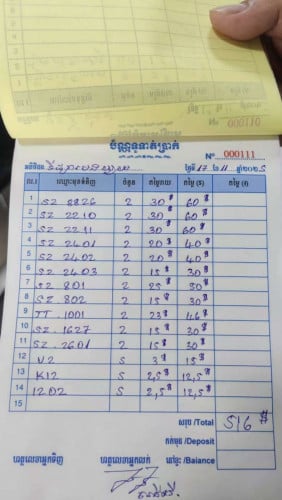 បណ្ណទូទាត់ប្រាក់
Nº 000111
ថ្ងៃទី 17 ខែ 11 ឆ្នាំ២០២5
ល.រ ឈ្មោះមុខទំនិញ ចំនួន តម្លៃរាយ តម្លៃ ($) តម្លៃ (៛)
1 SZ 8826 2 30$ 60$
2 SZ 2210 2 30$ 60$
3 SZ 2211 2 30$ 60$
4 SZ 2401 2 20$ 40$
5 SZ 2402 2 20$ 40$
6 SZ 2403 2 15$ 30$
7 SZ 801 2 25$ 50$
8 SZ 802 2 15$ 30$
9 TT 1001 2 23$ 46$
10 SZ 1627 2 15$ 30$
11 SZ 2601 2 15$ 30$
12 V2 5 3$ 15$
13 K12 5 2,5$ 12,5$
14 1202 5 2,5$ 12,5$
15
សរុប /Total 516$
កក់មុន /Deposit
នៅខ្វះ /Balance
ហត្ថលេខាអ្នកទិញ ហត្ថលេខាអ្នកលក់